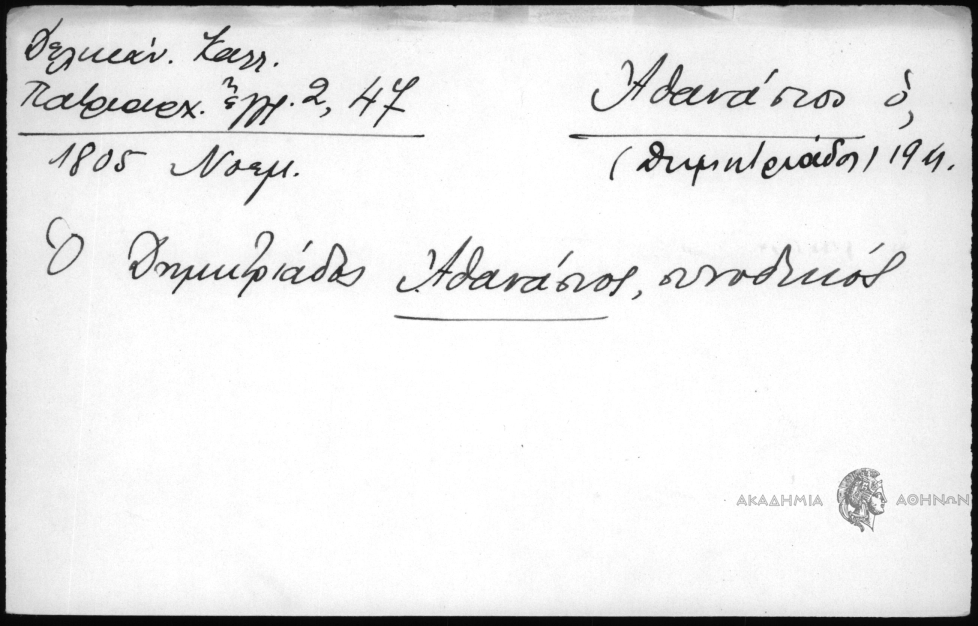 Δελικάν. Καλλ.
Πατριαρχ. ἔγγρ. 2, 47
1805 Νοεμ.
Ἀθανάσιος ὁ,
(Δημητριάδος) 19 αι.
Ὁ Δημητριάδος Ἀθανάσιος, συνοδικός
ΑΚΑΔΗΜΙΑ ΑΘΗΝΩΝ